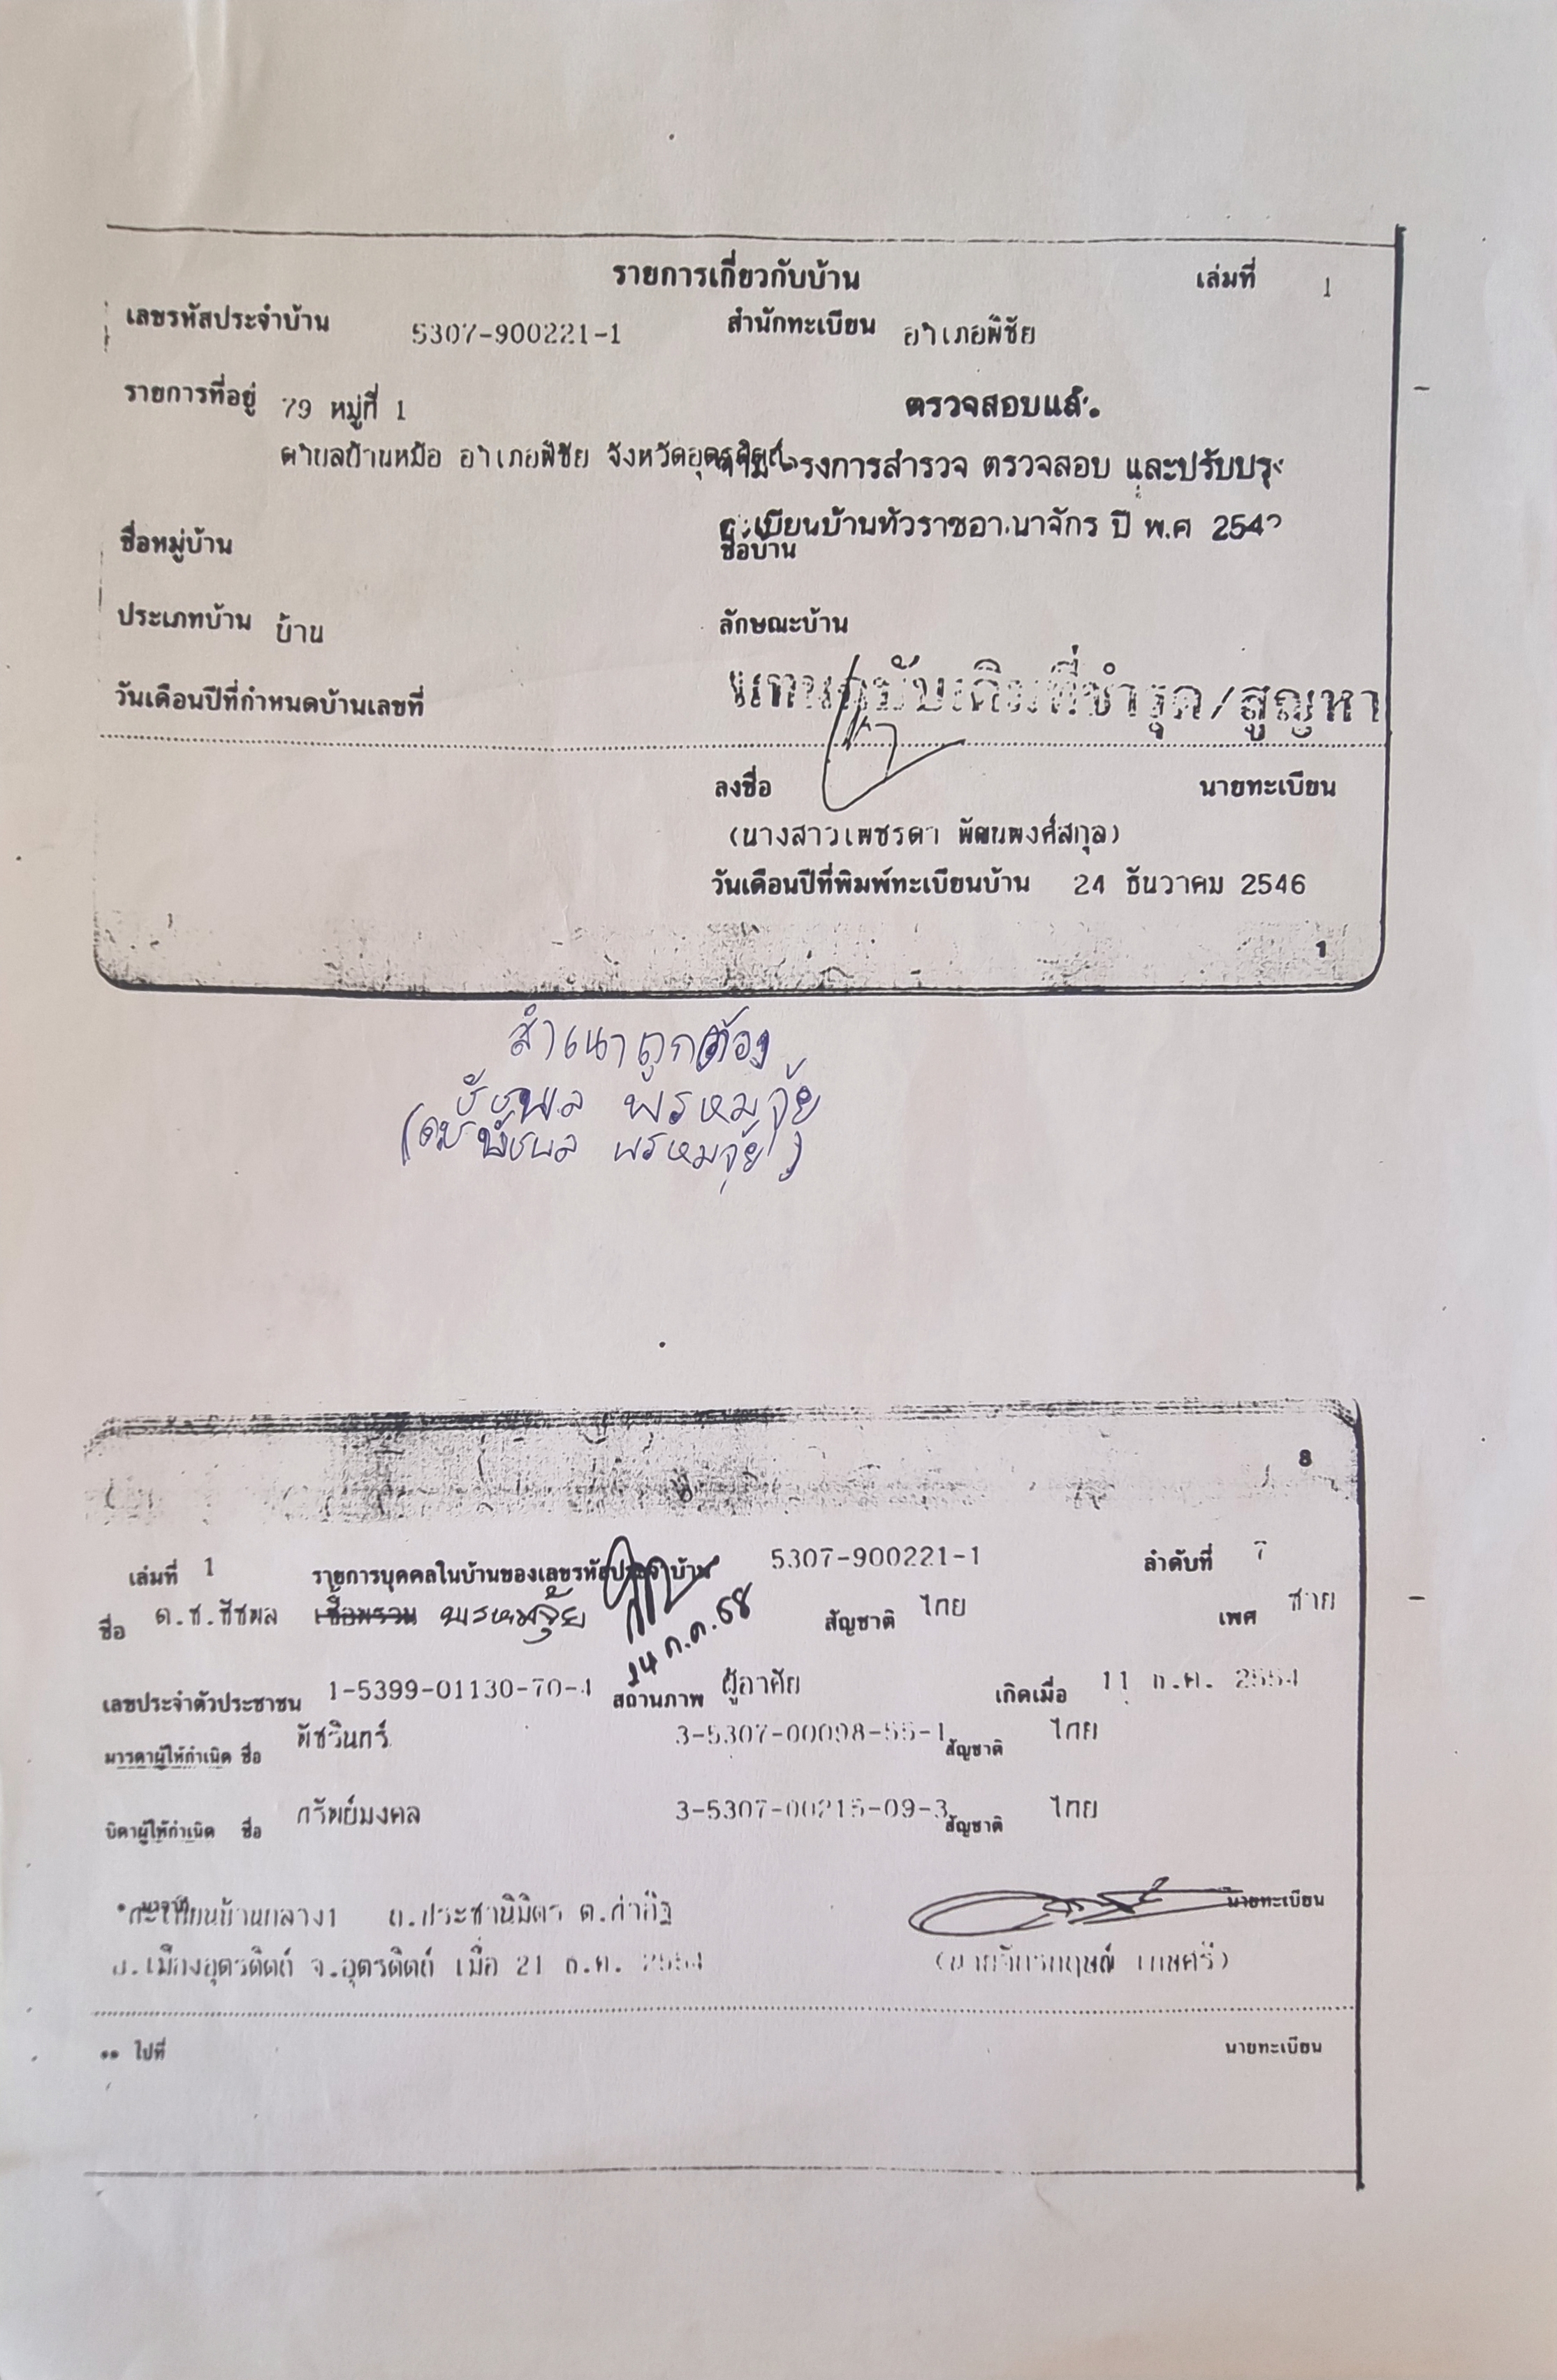 รายการเกี่ยวกับบ้าน เล่มที่ 1
เลขรหัสประจำบ้าน 5307-900221-1 สำนักทะเบียน อำเภอพิชัย
รายการที่อยู่ 79 หมู่ที่ 1
ตรวจสอบแล้ว
ตำบลบ้านหม้อ อำเภอพิชัย จังหวัดอุตรดิตถ์
ตามโครงการสำรวจ ตรวจสอบ และปรับปรุง
ทะเบียนบ้านทั่วราชอาณาจักร ปี พ.ศ 254
ชื่อหมู่บ้าน ชื่อบ้าน
ประเภทบ้าน บ้าน ลักษณะบ้าน
แทนฉบับเดิมที่ชำรุด/สูญหา
วันเดือนปีที่กำหนดบ้านเลขที่
ลงชื่อ นายทะเบียน
(นางสาวเพชรดา พัฒนพงศ์สกุล)
วันเดือนปีที่พิมพ์ทะเบียนบ้าน 24 ธันวาคม 2546
1
สำเนาถูกต้อง
พรหมจุ้ย
พรหมจุ้ย)
8
เล่มที่ 1 รายการบุคคลในบ้านของเลขรหัสประจำบ้าน 5307-900221-1 ลำดับที่ 7
ชื่อ ด.ช.ชัชพล เชื้อพรวน พรหมจุ้ย สัญชาติ ไทย เพศ ชาย
14 ก.ค.58
เลขประจำตัวประชาชน 1-5399-01130-70-4 สถานภาพ ผู้อาศัย เกิดเมื่อ 11 ธ.ค. 2554
มารดาผู้ให้กำเนิด ชื่อ พัชรินทร์ 3-5307-00098-55-1 สัญชาติ ไทย
บิดาผู้ให้กำเนิด ชื่อ ทรัพย์มงคล 3-5307-00215-09-3 สัญชาติ ไทย
* มาจาก ทะเบียนบ้านกลาง1 ถ.ประชานิมิตร ต.ท่าอิฐ นายทะเบียน
อ.เมืองอุตรดิตถ์ จ.อุตรดิตถ์ เมื่อ 21 ธ.ค. 2554 (นายจักรกฤษณ์ เกษศรี)
** ไปที่ นายทะเบียน